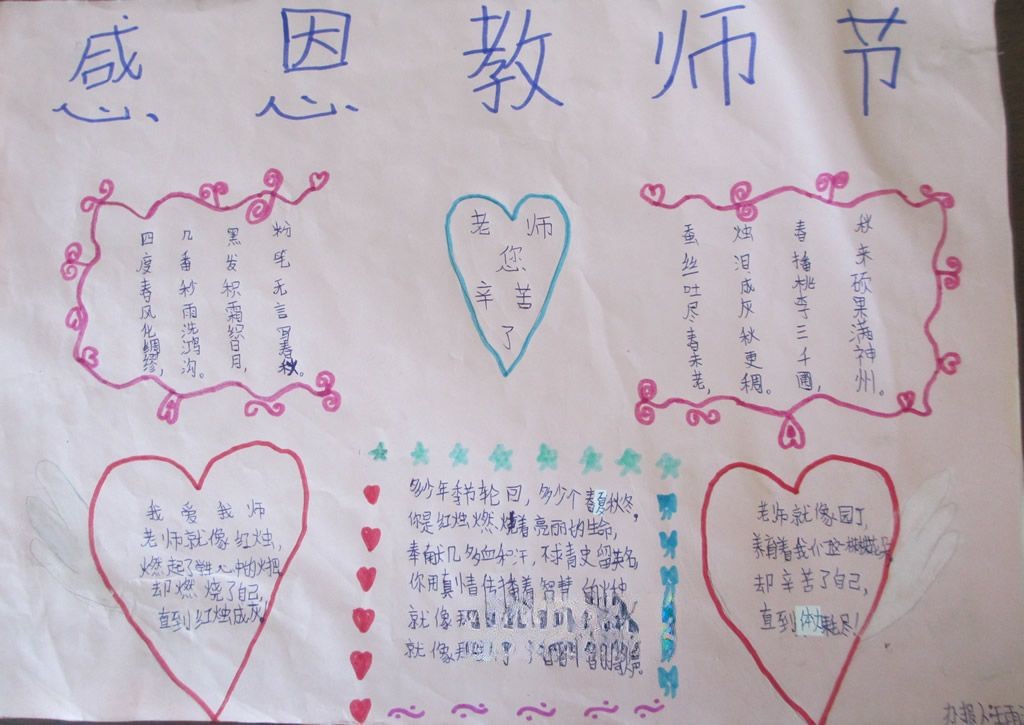 感恩教师节
粉笔无言写春秋。
黑发积霜织日月,
几番秒雨洗鸿沟。
四度春风化绸缪,
老师
您
辛苦
了
秋来硕果满神州。
春播桃李三千圃,
烛泪成灰秋更稠。
蚕丝吐尽春未老,
我爱我师
老师就像红烛,
燃起了学生心中的火把
却燃烧了自己,
直到红烛成灰!
多少年季节轮回,多少个春夏秋冬,
你是红烛燃烧着亮丽的生命,
奉献几多血和汗,不求青史留英名
你用真情传播着智慧的火种
就像那
就像那
老师就像园丁,
养育着我们这些花朵
却辛苦了自己,
直到体力耗尽!
办报人:汪雨